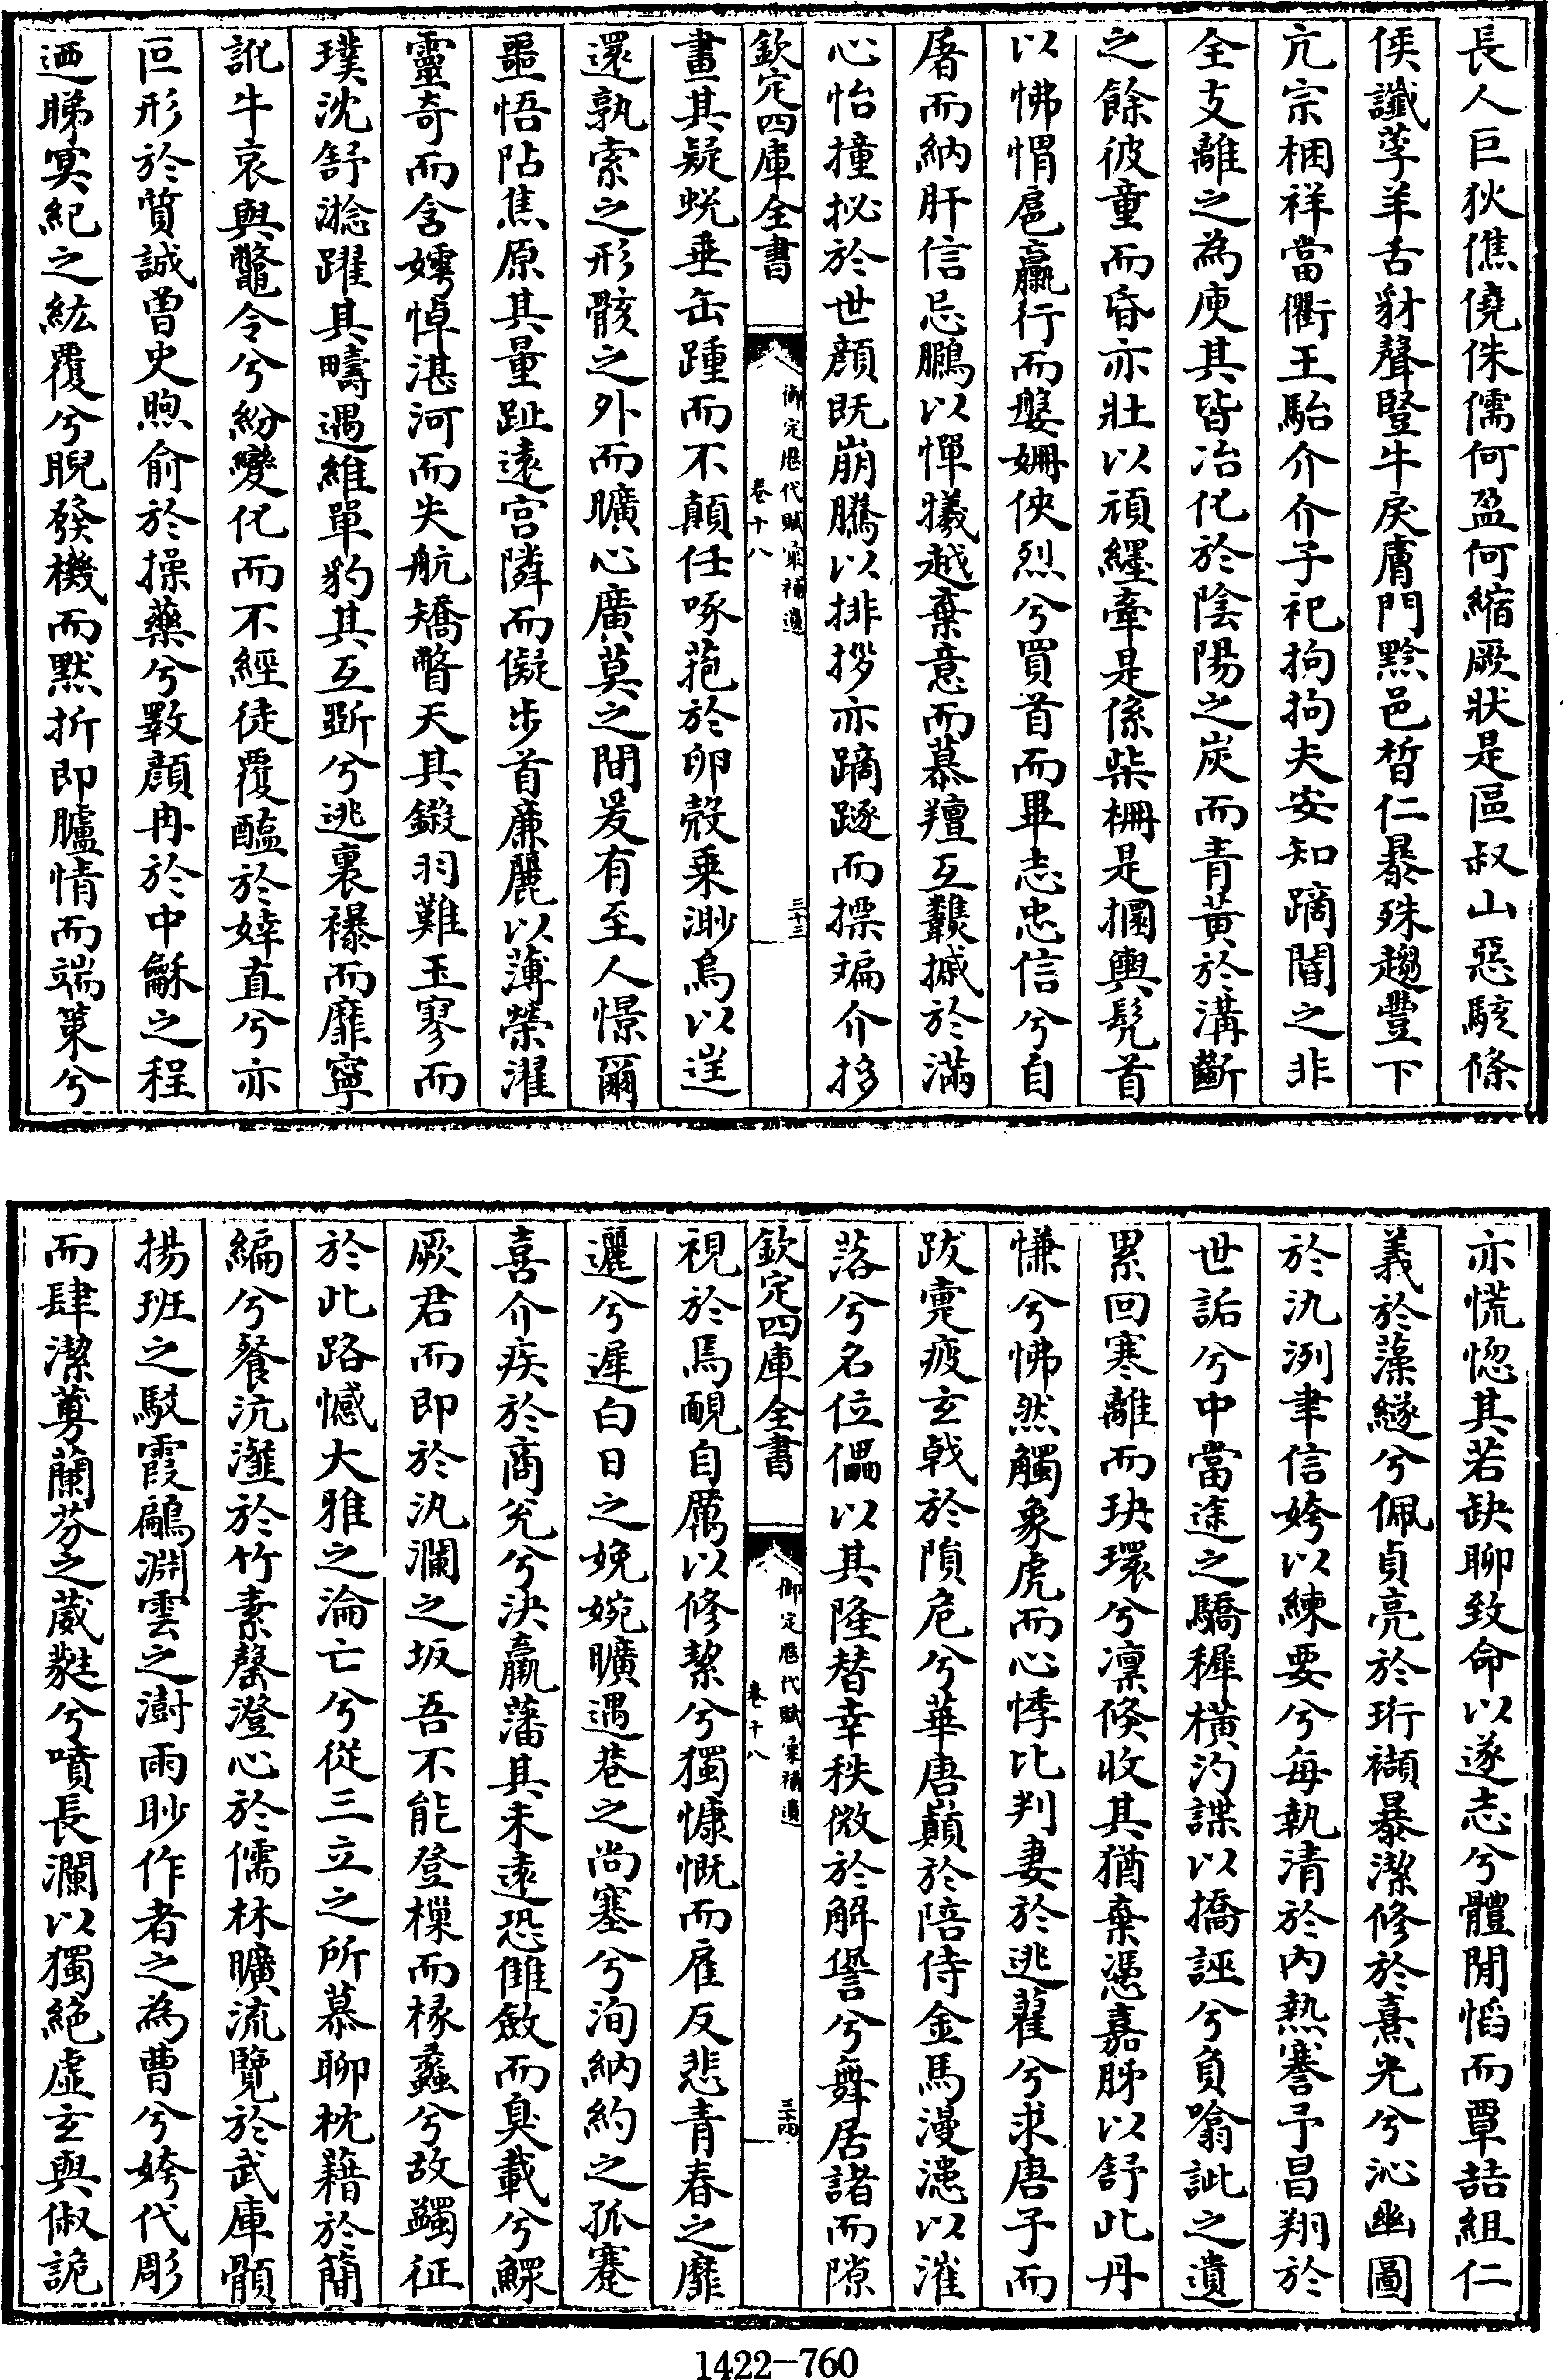 長人巨狄僬僥侏儒何盈何縮厥狀是區叔山惡駭條
侯讖莩羊舌豺聲豎牛戾膚門黔邑晳仁暴殊趨豐下
亢宗梱祥當衢王駘介介子祀拘拘夫安知蹢闇之非
全支離之為庾其皆冶化於陰陽之炭而青黃於溝斷
之餘彼童而昏亦壯以頑纆牽是係柴柵是攌輿髡首
以怫悁扈羸行而槃姍俠烈兮買首而畢志忠信兮自
屠而納肝信忌鵩以憚犧越棄意而慕羶互䵳摵於滿
心怡撞㧙於世顔既崩騰以排拶亦蹢䠱而摽㾫介拸
欽定四庫全書
御定歷代賦彙補遺
卷十八
三十三
畫其疑蛻垂缶踵而不顛任啄葩於卵殼乗渺鳥以逕
還孰索之形骸之外而曠心廣莫之間爰有至人憬爾
噩悟阽焦原其量趾遠宫隣而儗步首廉麗以薄榮濯
靈奇而含嫮悼湛河而失航矯瞥天其鎩羽難玉寥而
璞沈舒淰躍其疇遇維單豹其互斲兮逃裏襮而靡寧
訛牛哀與鼈令兮紛變化而不經徒覆醢於婞直兮亦
叵形於質誠曾史煦俞於操藥兮斁顔冉於中龢之程
迺睇冥紀之紘覆兮睨發機而黙折即臚情而端策兮
亦慌惚其若缺聊致命以遂志兮體閒慆而覃喆組仁
義於藻繸兮佩貞亮於珩襭暴潔修於熹光兮沁幽圖
於氿洌聿信姱以練要兮每執清於内熱謇予昌翔於
世詬兮中當途之驕穉橫汋諜以撟誣兮負噏訿之遺
累回寒離而玦環兮凛倏收其猶棄憑嘉肺以舒此丹
慊兮怫然觸象虎而心悸比判妻於逃翟兮求唐子而
跋疐疲玄戟於隕危兮華唐巔於陪侍金馬漫漶以漼
落兮名位儡以其隆替幸秩微於解譽兮舞居諸而隙
欽定四庫全書
御定歷代賦彙補遺
卷十八
三十四
視於焉靦自厲以修絜兮獨慷慨而雇反悲青春之靡
邐兮遲白日之娩婉曠遇巷之尚塞兮洵納約之孤蹇
喜介疾於商兊兮決羸藩其未遠恐雔斂而臭載兮鰥
厥君而即於汍瀾之坂吾不能登樔而椽蠡兮故蠲征
於此路憾大雅之淪亡兮從三立之所慕聊枕藉於簡
編兮餐沆瀣於竹素罄澄心於儒林曠流覽於武庫顝
揚班之駁霞鷫淵雲之澍雨眇作者之為曹兮姱代彫
而肆潔蓴蘭芬之葳蕤兮噴長瀾以獨絶虛玄與俶詭
1422—760